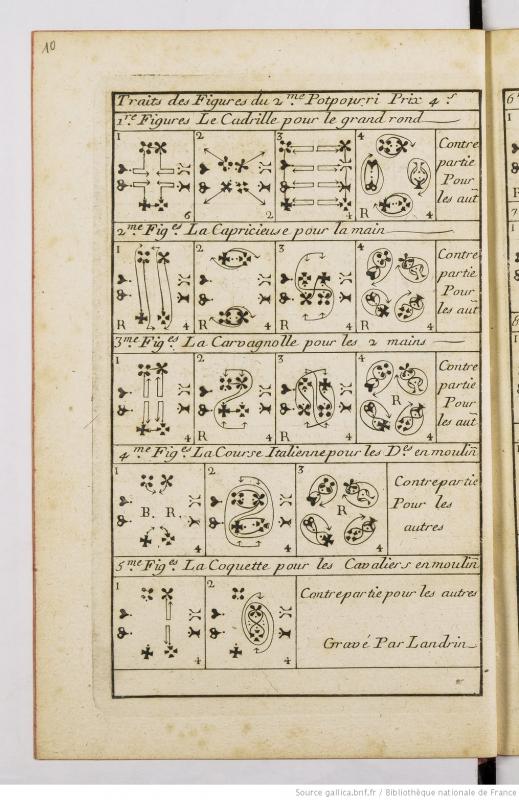 10
Traits des Figures du 2.me Potpourri Prix 4 s
1.re Figures Le Cadrille pour le grand rond
1 2 3 4
Contre
partie
Pour
les aut
6 2 4 R 4
2.me Fig.es La Capricieuse pour la main
1 2 3 4
Contre
partie
Pour
les aut
R 4 R 4 4 R 4
3.me Fig.es La Carvagnolle pour les 2 mains
1 2 3 4
Contre
partie
Pour
les aut
R
4 R 4 R 4 4
4.me Fig.es La Course Italienne pour les D.es en moulin
1 2 3
Contrepartie
Pour les
autres
B. R. R
4 4 4
5.me Fig.es La Coquette pour les Cavaliers en moulin
1 2
Contrepartie pour les autres
Gravé Par Landrin
4 4
6
R
7
1
8
1
Source gallica.bnf.fr / Bibliothèque nationale de France